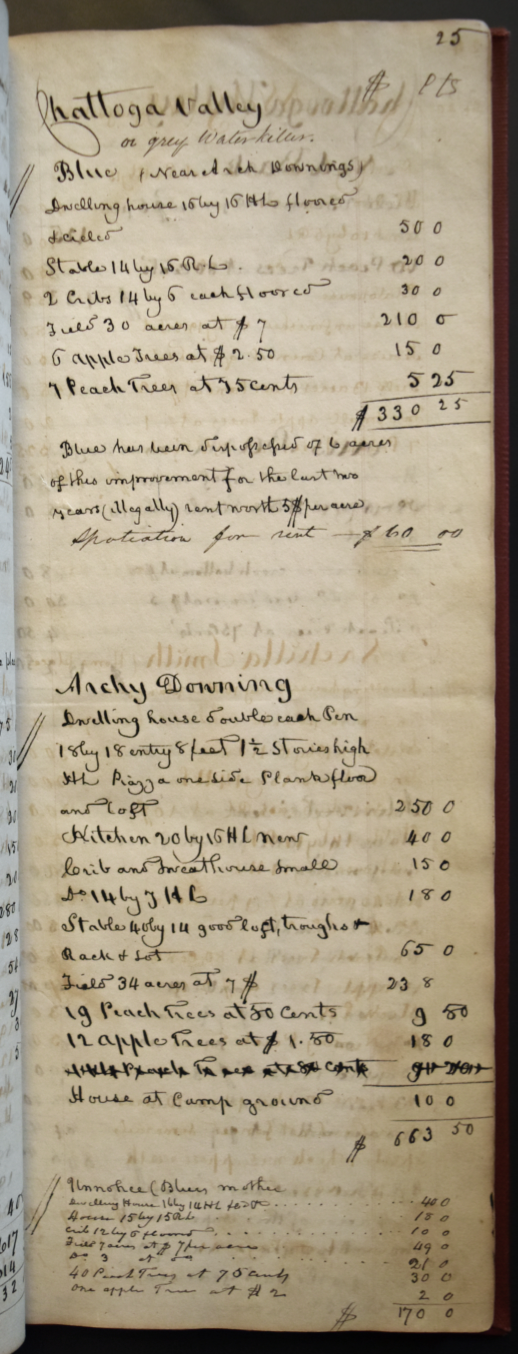 25
$ cts
Chattoga Valley
or grey Waterkiller.
Blue (Near Arch Downings)
Dwelling house 16 by 16 HL floored
& ciled 50 0
Stable 14 by 16 R.L. 20 0
2 Cribs 14 by 6 each floored 30 0
Field 30 acres at $ 7 210 0
6 apple Trees at $ 2.50 15 0
7 Peach Trees at 75 cents 5 25
$ 330 25
Blue has been dispossessed of 6 acres
of this improvement for the last two
years (illegally) rent worth 5$ per acre,
Spoliation for rent — $ 60 00
Archy Downing
Dwelling house double each Pen
18 by 18 entry 8 feet 1½ Stories high
HL Piazza one side Plank floor
and loft 250 0
Kitchen 20 by 16 HL new 40 0
Crib and meathouse small 15 0
Do 14 by 7 HL 18 0
Stable 40 by 14 good loft, troughs &
Rack & Lot 65 0
Field 34 acres at 7 $ 238
19 Peach Trees at 50 Cents 9 50
12 apple Trees at $ 1.50 18 0
House at Camp ground 10 0
$ 663 50
(Blues mother
Dwelling House 16 by 14 HL 40 0
House 15 by 15 15 0
Crib 12 by 5 floored 10 0
Field 7 acres at $ 7 per acre 49 0
Do 3 at Do 21 0
40 Peach Trees at 75 Cents 30 0
One apple Tree at $ 2 2 0
$ 170 0